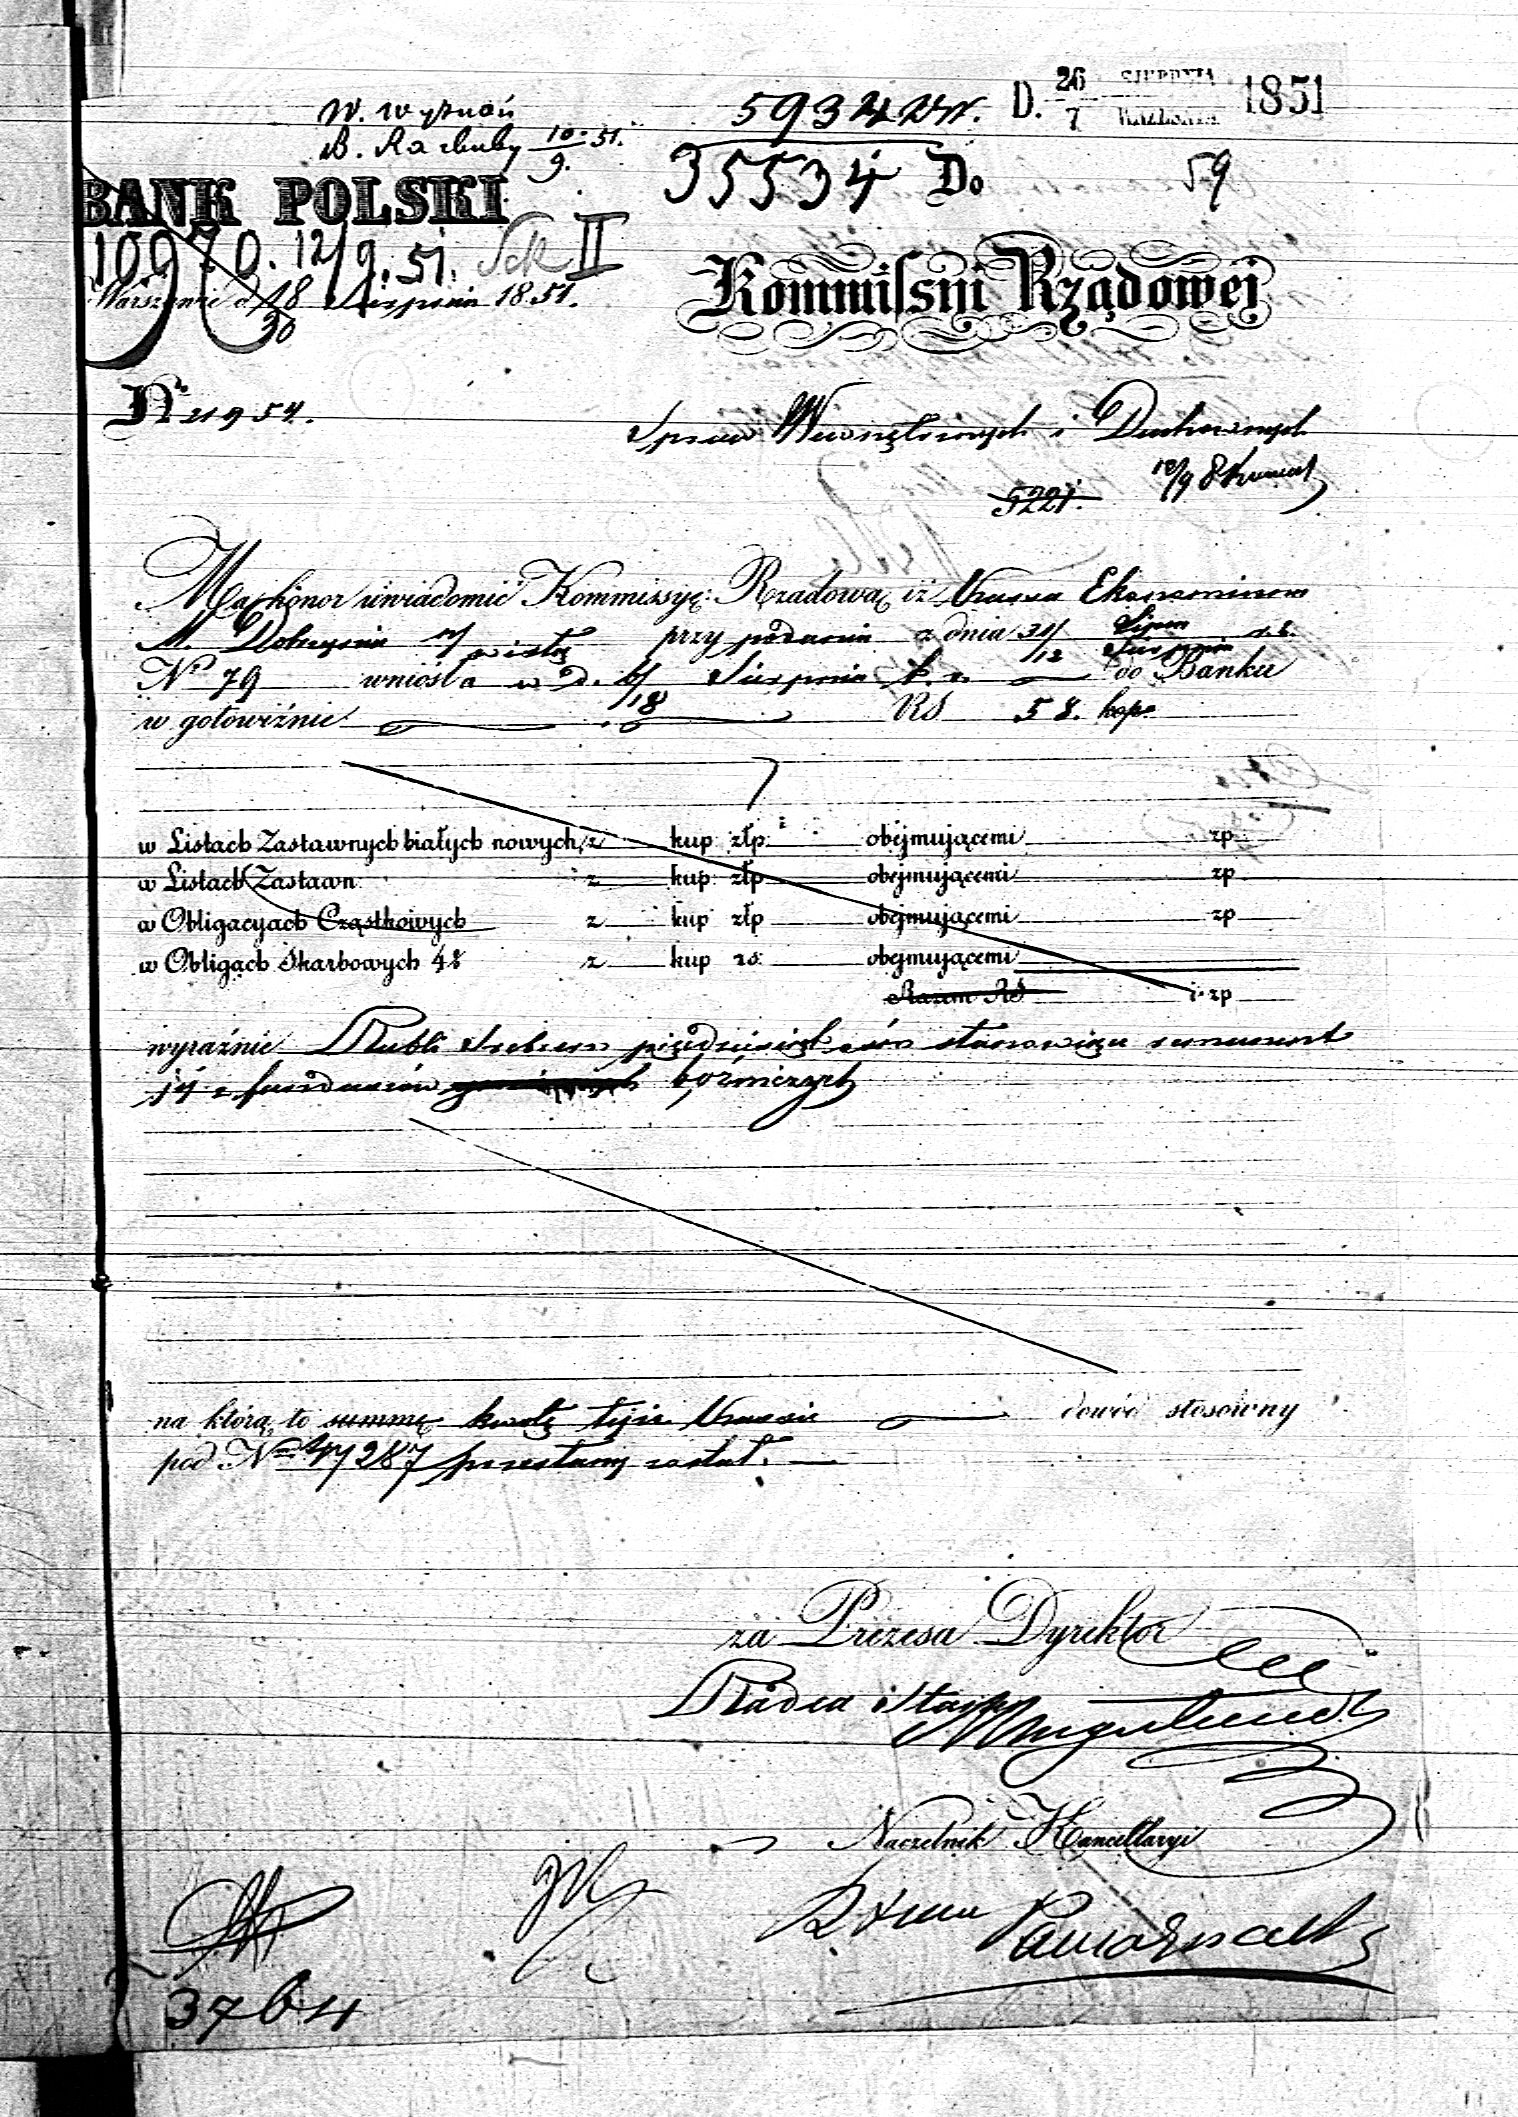 W. wyznań
B. Rachuby 10/9. 51.
5934 D. 26 SIERPNIA / 7 WRZEŚNIA 1851
35534 Do 59
BANK POLSKI
10970. 12/9. 51. Sek II
Warszawie d. 18/30 Sierpnia 1851.
Kommissyi Rządowej
No 21954.
Spraw Wewnętrznych i Duchownych
5221. 12/9
Ma honor uwiadomić Kommissyę Rządową iż Kassa Ekonomiczna
M. Dobrzynia n/Wisłą przy podaniu z dnia 31/12 Lipca/Sierpnia r. b.
No 79 wniosła w D. 6/18 Sierpnia t. r. do Banku
w gotowiźnie RS 58. kop.
w Listach Zastawnych białych nowych z kup złp. obejmującemi zp
w Listach Zastawn. z kup: złp obejmującemi zp
w Obligacyach Cząstkowych z kup złp obejmującemi zp
w Obligach Skarbowych 4% z kup rs: obejmującemi
Razem RS i zp
wyraźnie Rubli Srebrem pięćdziesiąt ośm stanowiącą remanent
jej z funduszów bóżniczych
na którą to summę kwotę tejże Kassie dowód stosowny
pod No 47287 przesłany został.
za Prezesa Dyrektor
Radca Stanu
Naczelnik Kancellaryi
3764